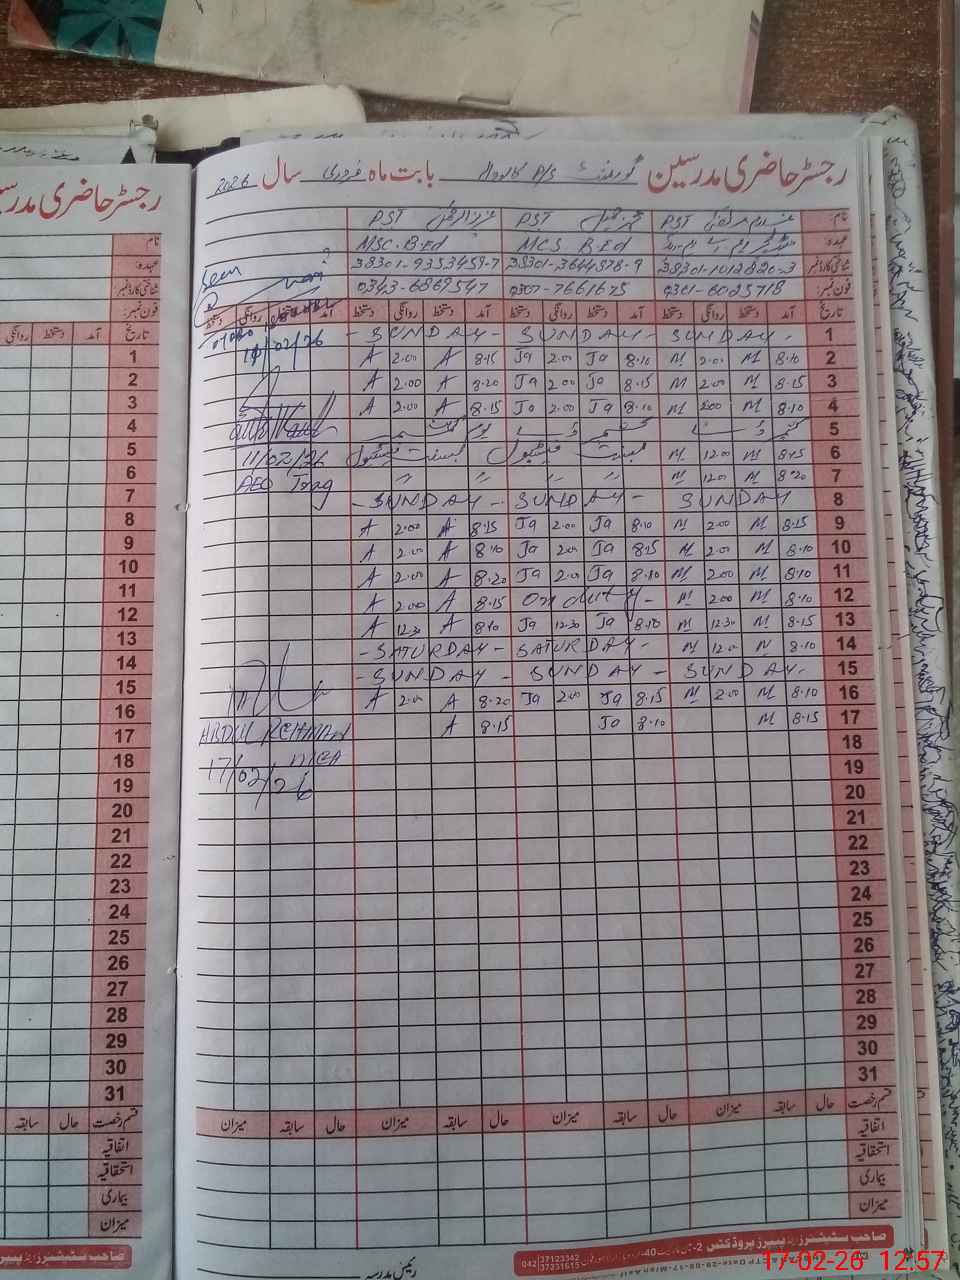 رجسٹر حاضری مدرسین گورنمنٹ P/S بابت ماہ فروری سال 2026
نام: PST PST PST
عہدہ: MCS B.Ed MSC.B.Ed
شناختی کارڈ نمبر 38301-1012820-3 38301-3644378-9 38301-9353459-7
فون نمبر: 0301-6025718 0307-7661675 0343-6869547
تاریخ آمد دستخط روانگی دستخط آمد دستخط روانگی دستخط آمد دستخط روانگی دستخط آمد دستخط روانگی دستخط
1 - SUNDAY - SUNDAY - SUNDAY -
2 8.10 M 2.00 M 8.10 Ja 2.00 Ja 8.15 A 2.00 A
3 8.15 M 2.00 M 8.15 Ja 2.00 Ja 8.20 A 2.00 A
4 8.10 M 2.00 M 8.10 Ja 2.00 Ja 8.15 A 2.00 A
5 کشمیر ڈے
6 8.15 M 12.00 M بسنت فیسٹیول بسنت فیسٹیول
7 8.20 M 12.00 M 〃 〃 〃 〃
8 - SUNDAY - SUNDAY - SUNDAY
9 8.15 M 2.00 M 8.10 Ja 2.00 Ja 8.15 A 2.00 A
10 8.10 M 2.00 M 8.15 Ja 2.00 Ja 8.10 A 2.00 A
11 8.10 M 2.00 M 8.10 Ja 2.00 Ja 8.20 A 2.00 A
12 8.10 M 2.00 M On duty - 8.15 A 2.00 A
13 8.15 M 12.30 M 8.10 Ja 12.30 Ja 8.10 A 12.30 A
14 8.10 M 12.00 M - SATURDAY - SATURDAY -
15 - SUNDAY - SUNDAY - SUNDAY -
16 8.10 M 2.00 M 8.15 Ja 2.00 Ja 8.20 A 2.00 A
17 8.15 M 8.10 Ja 8.15 A
18
19
20
21
22
23
24
25
26
27
28
29
30
31
Seen
11/02/26
11/02/26
AEO
ABDUL REHMAN
MEA
17/02/26
قسم رخصت حال سابقہ میزان حال سابقہ میزان حال سابقہ میزان حال سابقہ میزان
اتفاقیہ
استحقاقیہ
بیماری
میزان
صاحب سٹیشنرز اینڈ پیپرز پروڈکٹس
042 37123342 37231615
رئیس مدرسہ
رجسٹر حاضری مدرسین
نام:
عہدہ:
شناختی کارڈ نمبر
فون نمبر:
تاریخ آمد دستخط روانگی
1
2
3
4
5
6
7
8
9
10
11
12
13
14
15
16
17
18
19
20
21
22
23
24
25
26
27
28
29
30
31
قسم رخصت حال سابقہ
اتفاقیہ
استحقاقیہ
بیماری
میزان
صاحب سٹیشنرز اینڈ پیپرز
17-02-26 12:57